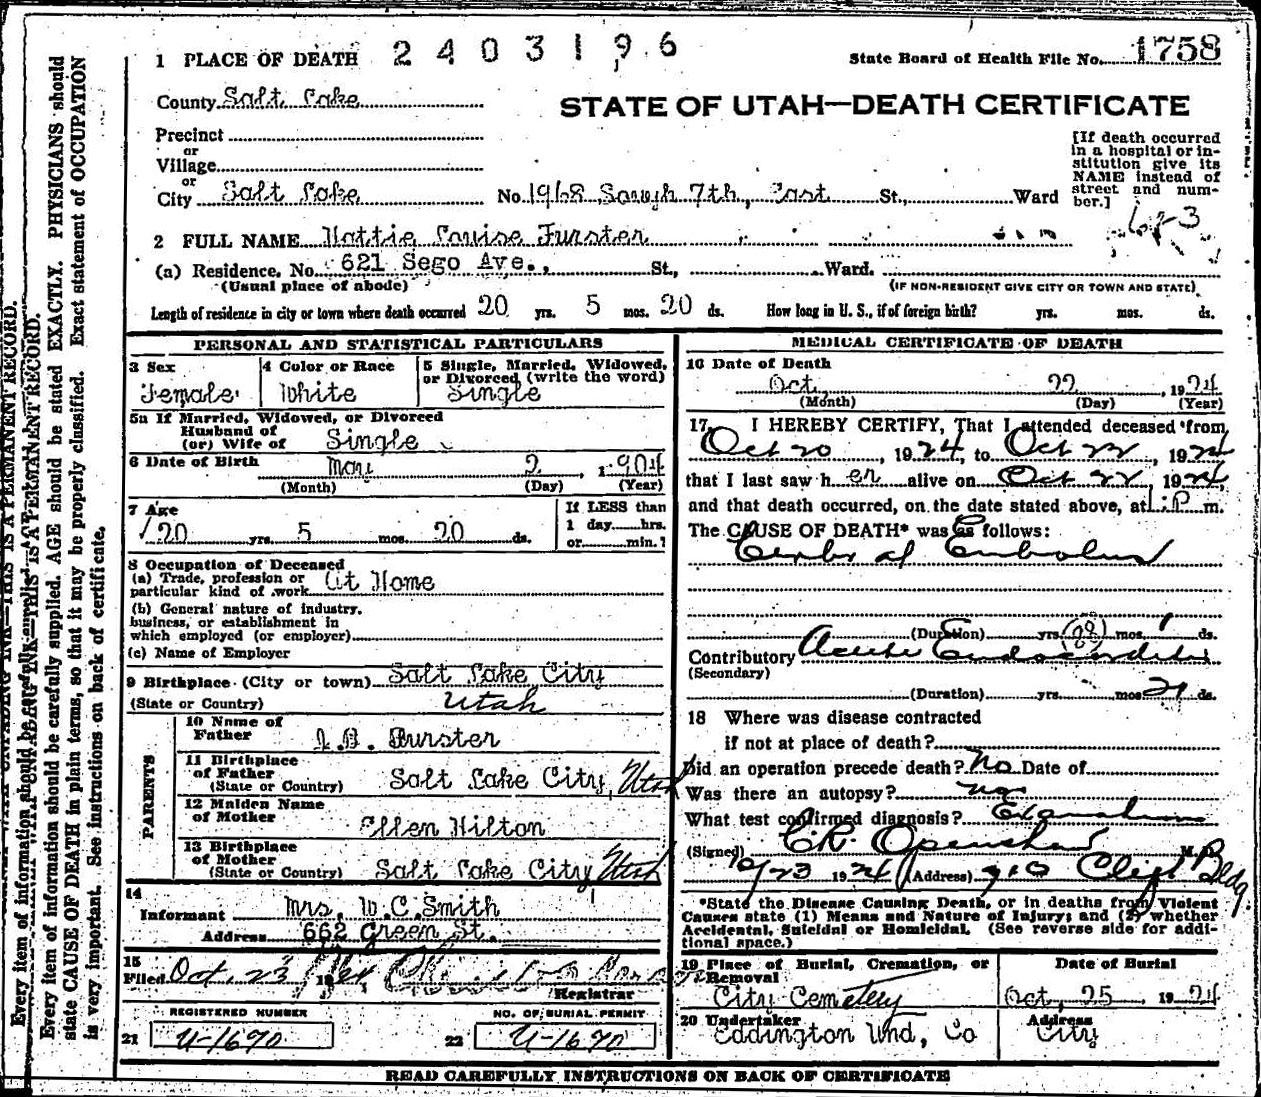 1 PLACE OF DEATH 2403196
State Board of Health File No. 1758
County Salt Lake
STATE OF UTAH—DEATH CERTIFICATE
Precinct
or
Village
or
City Salt Lake No. 1968 South 7th, East St., Ward
[If death occurred
in a hospital or in-
stitution give its
NAME instead of
street and num-
ber.]
2 FULL NAME Hattie Louise Furster
(a) Residence. No. 621 Sego Ave., St., Ward.
(Usual place of abode) (IF NON-RESIDENT GIVE CITY OR TOWN AND STATE)
Length of residence in city or town where death occurred 20 yrs. 5 mos. 20 ds. How long in U. S., if of foreign birth? yrs. mos. ds.
PERSONAL AND STATISTICAL PARTICULARS
3 Sex Female
4 Color or Race White
5 Single, Married, Widowed,
or Divorced (write the word)
Single
5a If Married, Widowed, or Divorced
Husband of
(or) Wife of Single
6 Date of Birth May 2, 1904
(Month) (Day) (Year)
7 Age 20 yrs. 5 mos. 20 ds.
If LESS than
1 day hrs.
or min.?
8 Occupation of Deceased
(a) Trade, profession or
particular kind of work At Home
(b) General nature of industry,
business, or establishment in
which employed (or employer)
(c) Name of Employer
9 Birthplace (City or town) Salt Lake City
(State or Country) Utah
PARENTS
10 Name of
Father J.D. Furster
11 Birthplace
of Father
(State or Country) Salt Lake City, Utah
12 Maiden Name
of Mother Ellen Hilton
13 Birthplace
of Mother
(State or Country) Salt Lake City Utah
14
Informant Mrs. W.C. Smith
Address 662 Green St.
15
Filed Oct. 23 1924
Registrar
REGISTERED NUMBER
21 U-1670
NO. OF BURIAL PERMIT
22 U-1670
MEDICAL CERTIFICATE OF DEATH
16 Date of Death
Oct. 22, 1924
(Month) (Day) (Year)
17 I HEREBY CERTIFY, That I attended deceased from
Oct 20, 1924, to Oct 22, 1924
that I last saw her alive on Oct 22, 1924,
and that death occurred, on the date stated above, at 1 P m.
The CAUSE OF DEATH* was as follows:
Cerebral Embolus
(Duration) yrs. mos. 1 ds.
Contributory Acute Endocarditis
(Secondary)
(Duration) yrs. mos. 21 ds.
18 Where was disease contracted
if not at place of death?
Did an operation precede death? No Date of
Was there an autopsy? no
What test confirmed diagnosis? Examination
(Signed) C.R. Openshaw M.D.
10/23 1924 (Address) 910 Clift Bldg.
*State the Disease Causing Death, or in deaths from Violent
Causes state (1) Means and Nature of Injury; and (2) whether
Accidental, Suicidal or Homicidal. (See reverse side for addi-
tional space.)
19 Place of Burial, Cremation, or
Removal
City Cemetery
Date of Burial
Oct. 25 1924
20 Undertaker
Eddington Und, Co
Address
City
READ CAREFULLY INSTRUCTIONS ON BACK OF CERTIFICATE
Every item of information should be carefully supplied. AGE should be stated EXACTLY. PHYSICIANS should
state CAUSE OF DEATH in plain terms, so that it may be properly classified. Exact statement of OCCUPATION
is very important. See instructions on back of certificate.